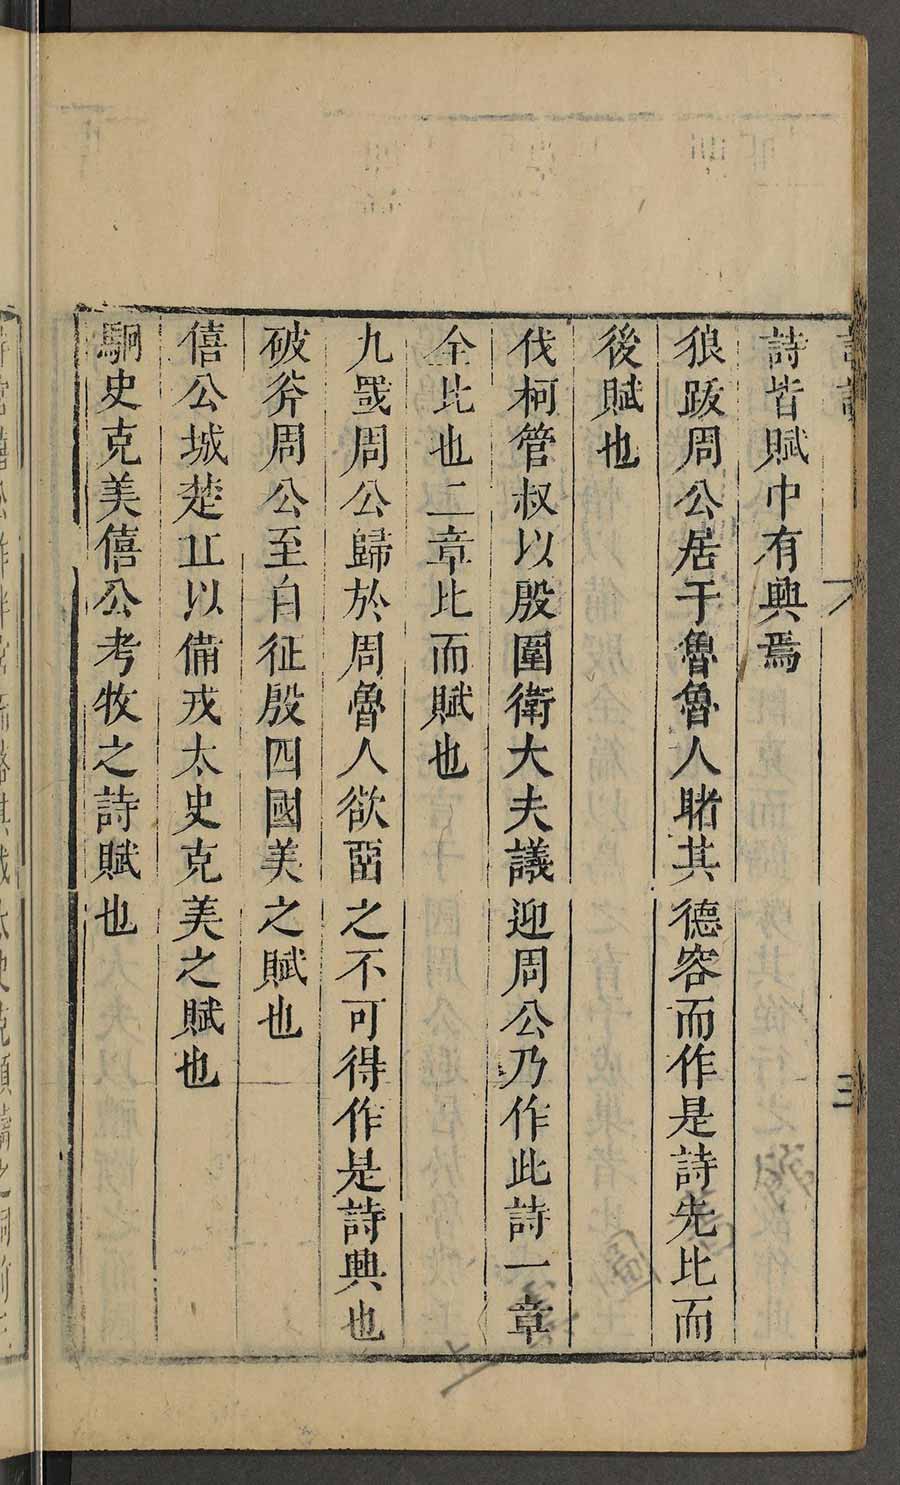 詩皆賦中有興焉
狼跋周公居于魯魯人睹其德容而作是詩先比而
後賦也
伐柯管叔以殷圍衛大夫議迎周公乃作此詩一章
全比也二章比而賦也
九罭周公歸於周魯人欲畱之不可得作是詩興也
破斧周公至自征殷四國美之賦也
僖公城楚丘以備戎太史克美之賦也
駉史克美僖公考牧之詩賦也